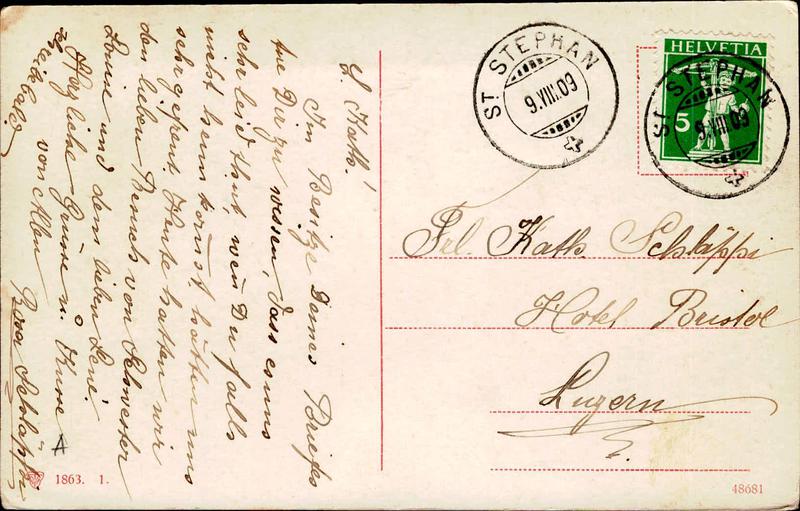 L. Kath!
Im Besitze Deines Briefes
tue Dir zu wissen, dass es uns
sehr leid thut wen Du falls
nicht heim könst, hätten uns
sehr gefreut. Heute hatten wir
den lieben Besuch von Schwester
Louise und dem lieben Leni
Herzliche Grüsse u. Küsse
von Allen
Rosa Schläppi
ST. STEPHAN
9.VIII.09
HELVETIA
5
ST. STEPHAN
9.VIII.09
Frl. Kath Schläppi
Hotel Bristol
Luzern
1863. 1.
48681